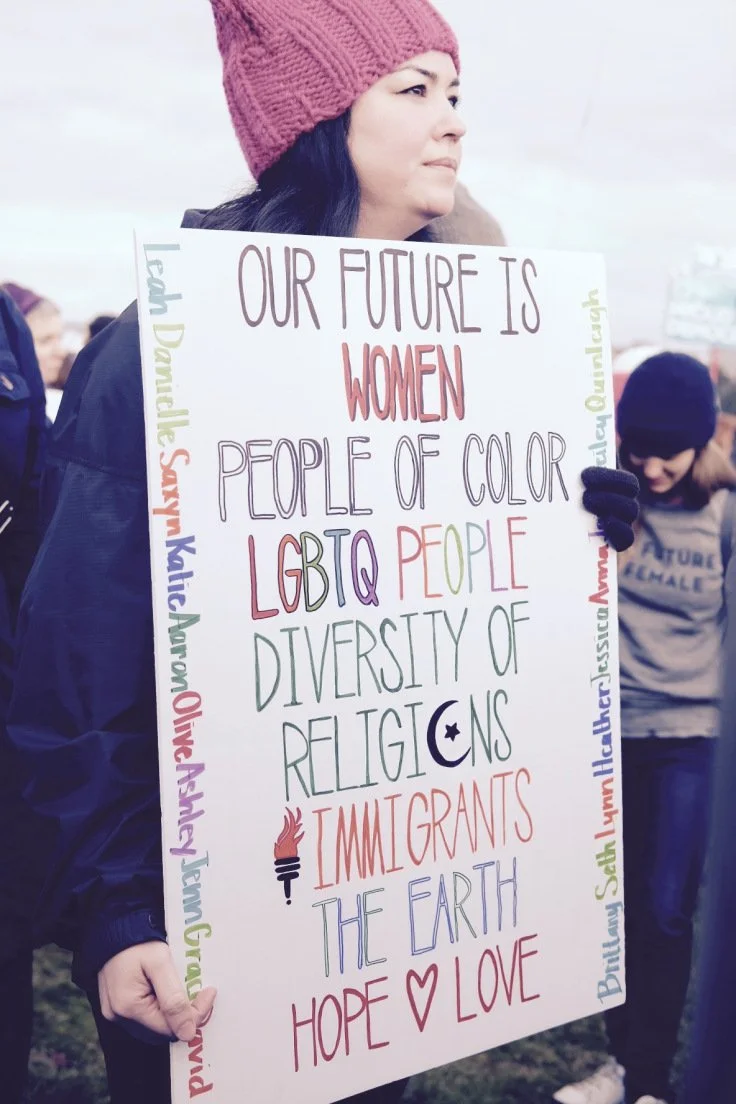 OUR FUTURE IS
WOMEN
PEOPLE OF COLOR
LGBTQ PEOPLE
DIVERSITY OF
RELIGIONS
IMMIGRANTS
THE EARTH
HOPE LOVE
Leah Danielle Saxyn Katie Aaron Olive Ashley Jenn David
Brittany Seth Lynn Heather Jessica Anna Quinleigh
FUTURE
FEMALE